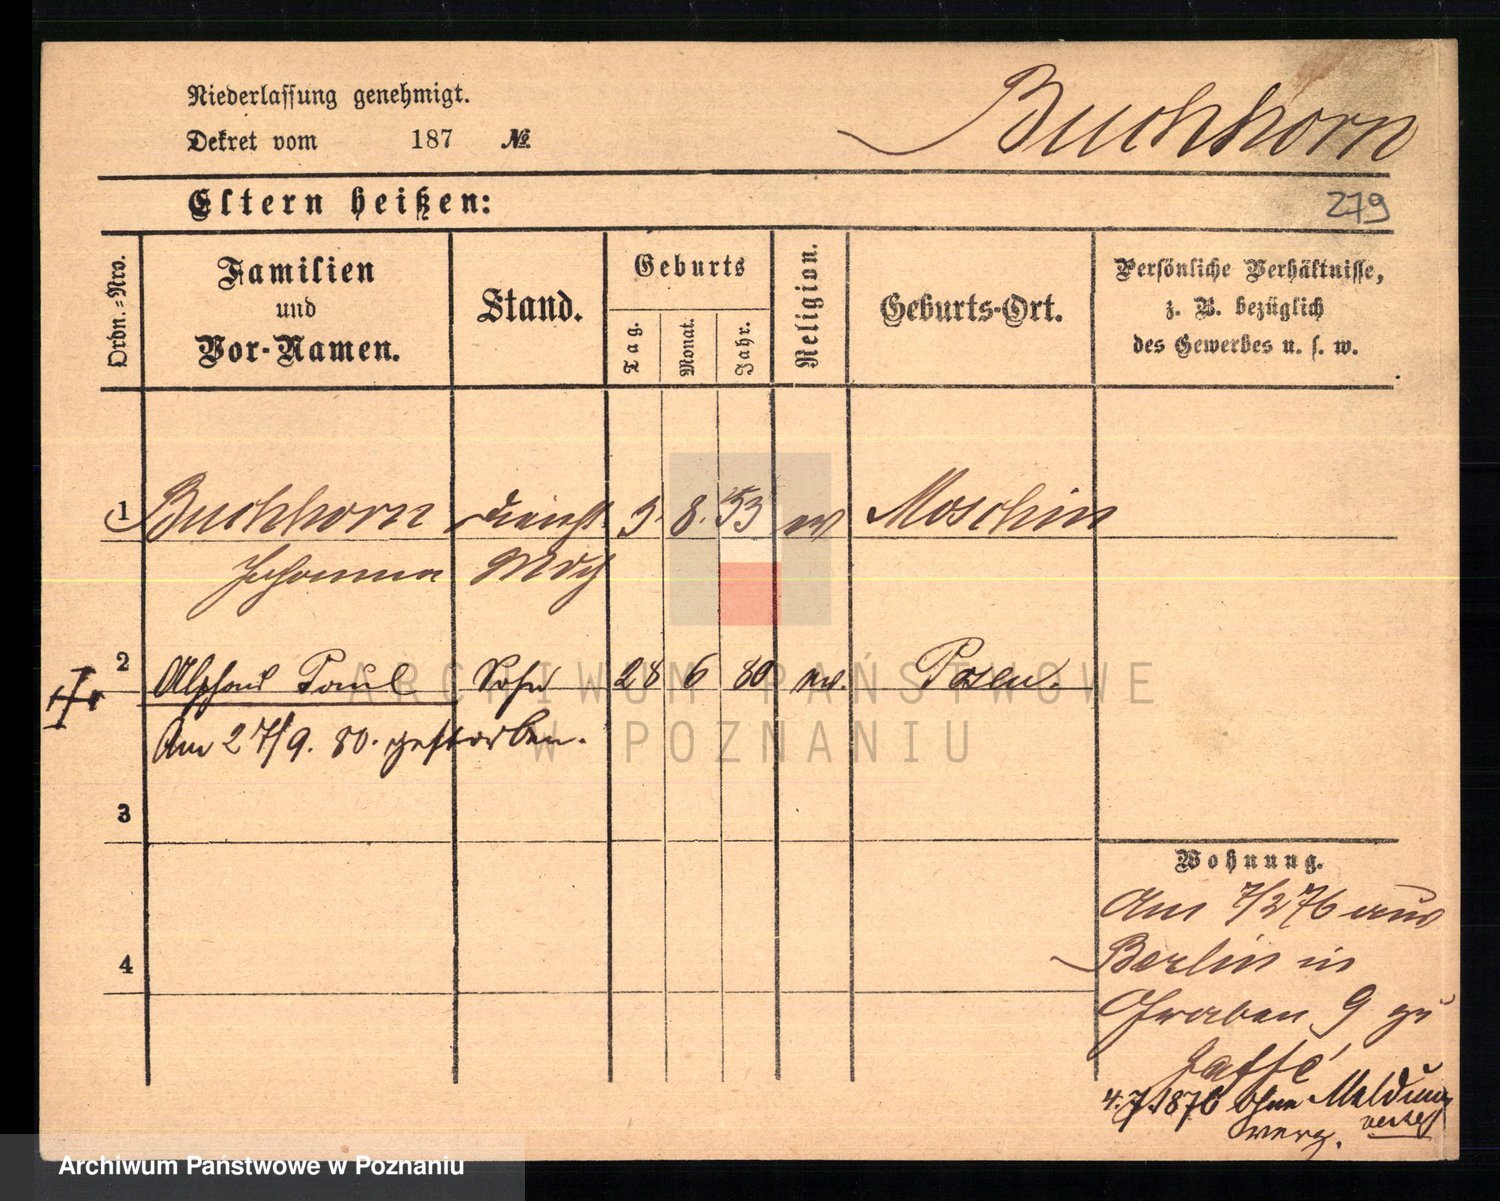 Niederlassung genehmigt.
Dekret vom 187 №
Buchhorn
Eltern heißen:
279
Ordn.-Nro.
Familien
und
Vor-Namen.
Stand.
Geburts
Tag.
Monat.
Jahr.
Religion.
Geburts-Ort.
Persönliche Verhältnisse,
z. B. bezüglich
des Gewerbes u. s. w.
1 Buchhorn Dienst 5. 8. 53 ev Moschin
Johanna Mdch
2 Alphons Paul Sohn 28 6 80 ev. Posen.
Am 27/9. 80. gestorben.
3
4
Wohnung.
Am 7/2 76 aus
Berlin in
Graben 9 zu
Jaffé
4.7.1876 ohne Meldung
verz.
ARCHIWUM PAŃSTWOWE
W POZNANIU
Archiwum Państwowe w Poznaniu